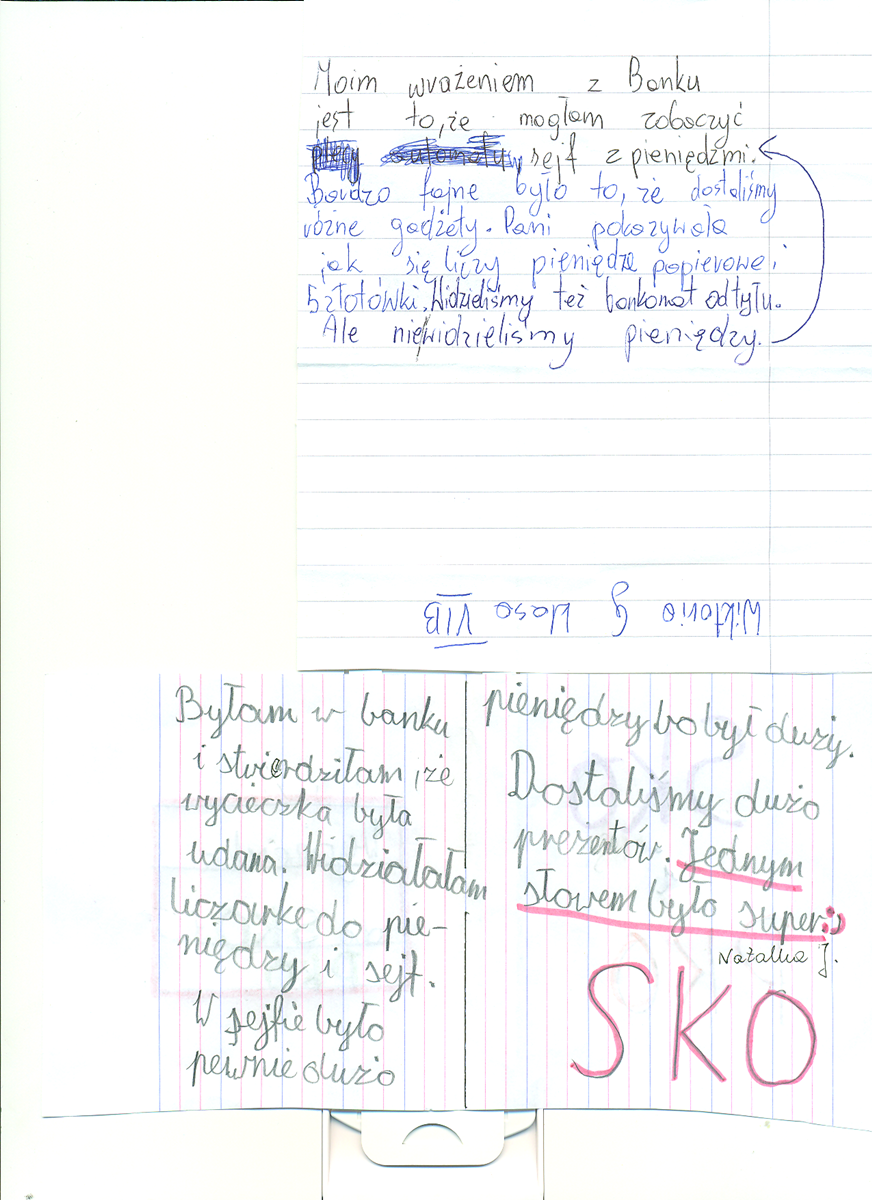 Moim wrażeniem z Banku
jest to, że mogłam zobaczyć
sejf z pieniędzmi.
Bardzo fajne było to, że dostaliśmy
różne gadżety. Pani pokazywała
jak się liczy pieniądze papierowe i
5złotówki. Widzieliśmy też bankomat od tyłu.
Ale niewidzieliśmy pieniędzy.
Wiktoria G klasa VIB
Byłam w banku
i stwierdziłam, że
wycieczka była
udana. Widziałałam
liczarke do pie-
niędzy i sejf.
W sejfie było
pewnie dużo
pieniędzy bo był duży.
Dostaliśmy dużo
prezentów. Jednym
słowem było super:)
Natalka J.
SKO